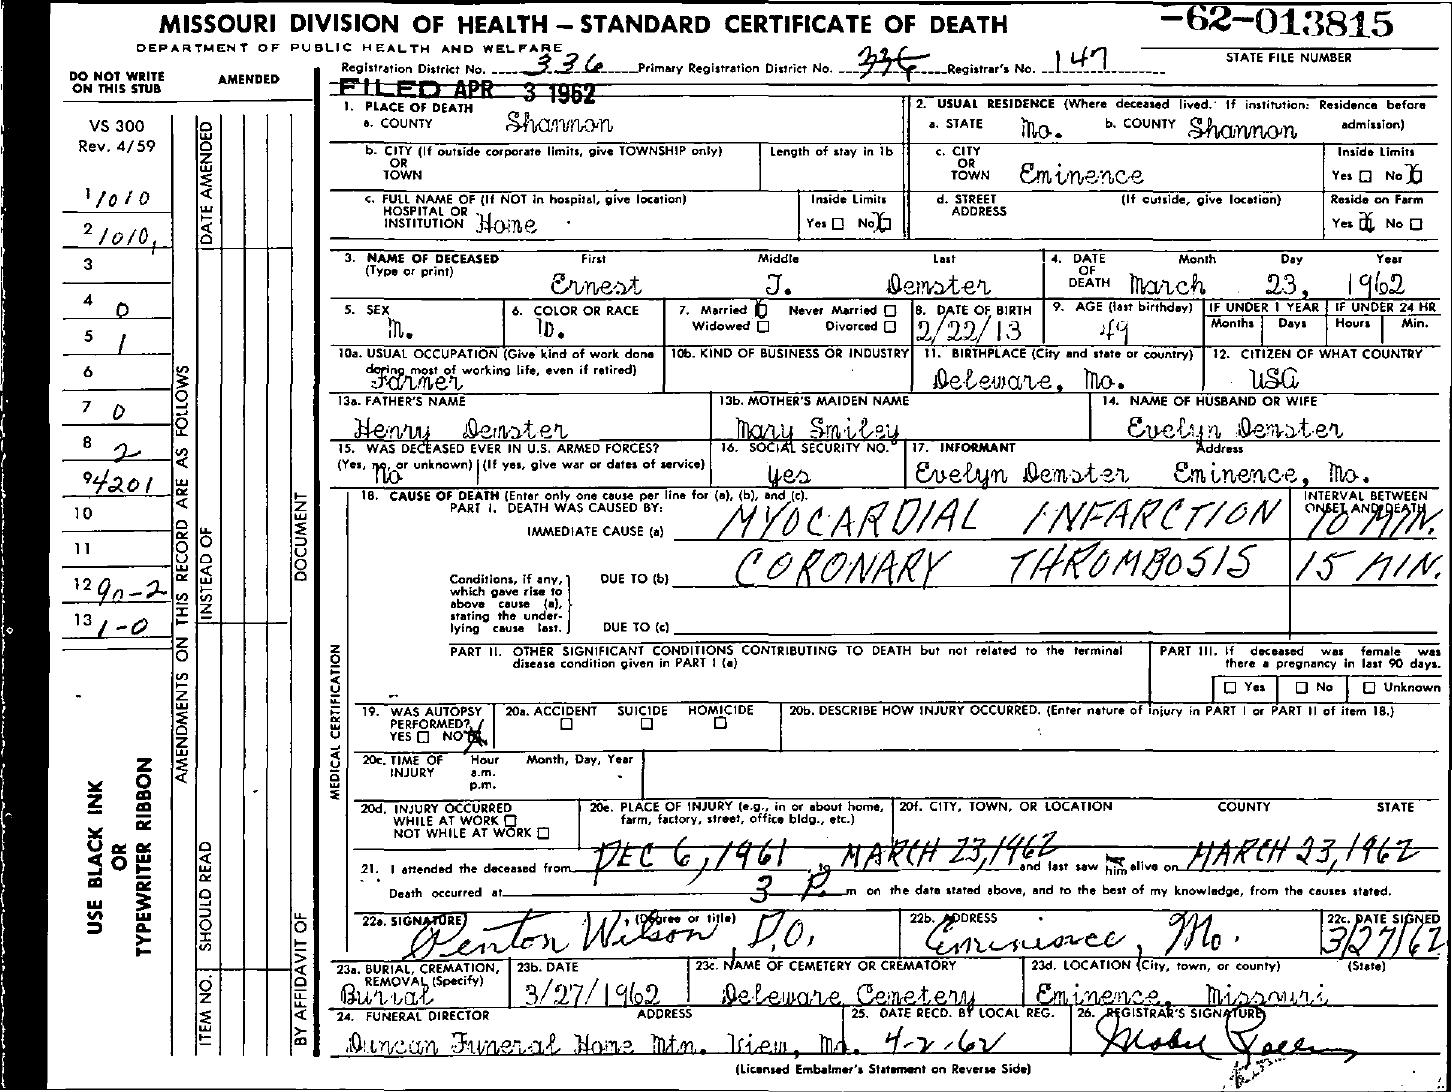 MISSOURI DIVISION OF HEALTH — STANDARD CERTIFICATE OF DEATH
-62-013815
DEPARTMENT OF PUBLIC HEALTH AND WELFARE
STATE FILE NUMBER
Registration District No. 336 Primary Registration District No. 336 Registrar's No. 147
DO NOT WRITE ON THIS STUB
AMENDED
FILED APR 3 1962
VS 300
Rev. 4/59
1 1010
2 1010,
3
4 0
5 1
6
7 0
8 2
9 4201
10
11
12 90-2
13 1-0
USE BLACK INK
OR
TYPEWRITER RIBBON
AMENDMENTS ON THIS RECORD ARE AS FOLLOWS
DATE AMENDED
INSTEAD OF
SHOULD READ
ITEM NO.
DOCUMENT
BY AFFIDAVIT OF
MEDICAL CERTIFICATION
1. PLACE OF DEATH
a. COUNTY Shannon
2. USUAL RESIDENCE (Where deceased lived. If institution: Residence before admission)
a. STATE Mo. b. COUNTY Shannon
b. CITY (If outside corporate limits, give TOWNSHIP only) OR TOWN
Length of stay in 1b
c. CITY OR TOWN Eminence
Inside Limits
Yes No
c. FULL NAME OF (If NOT in hospital, give location) HOSPITAL OR INSTITUTION Home
Inside Limits
Yes No
d. STREET ADDRESS (If outside, give location)
Reside on Farm
Yes No
3. NAME OF DECEASED (Type or print)
First Middle Last
Ernest J. Demster
4. DATE OF DEATH
Month Day Year
March 23, 1962
5. SEX
M.
6. COLOR OR RACE
W.
7. Married Never Married
Widowed Divorced
8. DATE OF BIRTH
2/22/13
9. AGE (last birthday)
49
IF UNDER 1 YEAR
Months Days
IF UNDER 24 HR
Hours Min.
10a. USUAL OCCUPATION (Give kind of work done during most of working life, even if retired)
Farmer
10b. KIND OF BUSINESS OR INDUSTRY
11. BIRTHPLACE (City and state or country)
Deleware, Mo.
12. CITIZEN OF WHAT COUNTRY
USA
13a. FATHER'S NAME
Henry Demster
13b. MOTHER'S MAIDEN NAME
Mary Smiley
14. NAME OF HUSBAND OR WIFE
Evelyn Demster
15. WAS DECEASED EVER IN U.S. ARMED FORCES?
(Yes, no, or unknown) (If yes, give war or dates of service)
No
16. SOCIAL SECURITY NO.
yes
17. INFORMANT Address
Evelyn Demster Eminence, Mo.
18. CAUSE OF DEATH (Enter only one cause per line for (a), (b), and (c).
PART I. DEATH WAS CAUSED BY:
INTERVAL BETWEEN ONSET AND DEATH
IMMEDIATE CAUSE (a) MYOCARDIAL INFARCTION 10 MIN.
Conditions, if any, which gave rise to above cause (a), stating the underlying cause last.
DUE TO (b) CORONARY THROMBOSIS 15 MIN.
DUE TO (c)
PART II. OTHER SIGNIFICANT CONDITIONS CONTRIBUTING TO DEATH but not related to the terminal disease condition given in PART I (a)
PART III. If deceased was female was there a pregnancy in last 90 days.
Yes No Unknown
19. WAS AUTOPSY PERFORMED?
YES NO
20a. ACCIDENT SUICIDE HOMICIDE
20b. DESCRIBE HOW INJURY OCCURRED. (Enter nature of injury in PART I or PART II of item 18.)
20c. TIME OF INJURY
Hour a.m. p.m.
Month, Day, Year
20d. INJURY OCCURRED
WHILE AT WORK
NOT WHILE AT WORK
20e. PLACE OF INJURY (e.g., in or about home, farm, factory, street, office bldg., etc.)
20f. CITY, TOWN, OR LOCATION COUNTY STATE
21. I attended the deceased from DEC 6, 1961 to MARCH 23, 1962 and last saw him alive on MARCH 23, 1962
Death occurred at 3 P. m on the date stated above, and to the best of my knowledge, from the causes stated.
22a. SIGNATURE (Degree or title)
Wilson D.O.
22b. ADDRESS
Eminence, Mo.
22c. DATE SIGNED
3/27/62
23a. BURIAL, CREMATION, REMOVAL (Specify)
Burial
23b. DATE
3/27/1962
23c. NAME OF CEMETERY OR CREMATORY
Deleware Cemetery
23d. LOCATION (City, town, or county) (State)
Eminence, Missouri
24. FUNERAL DIRECTOR ADDRESS
Duncan Funeral Home Mtn. View, Mo.
25. DATE RECD. BY LOCAL REG.
4-2-62
26. REGISTRAR'S SIGNATURE
(Licensed Embalmer's Statement on Reverse Side)